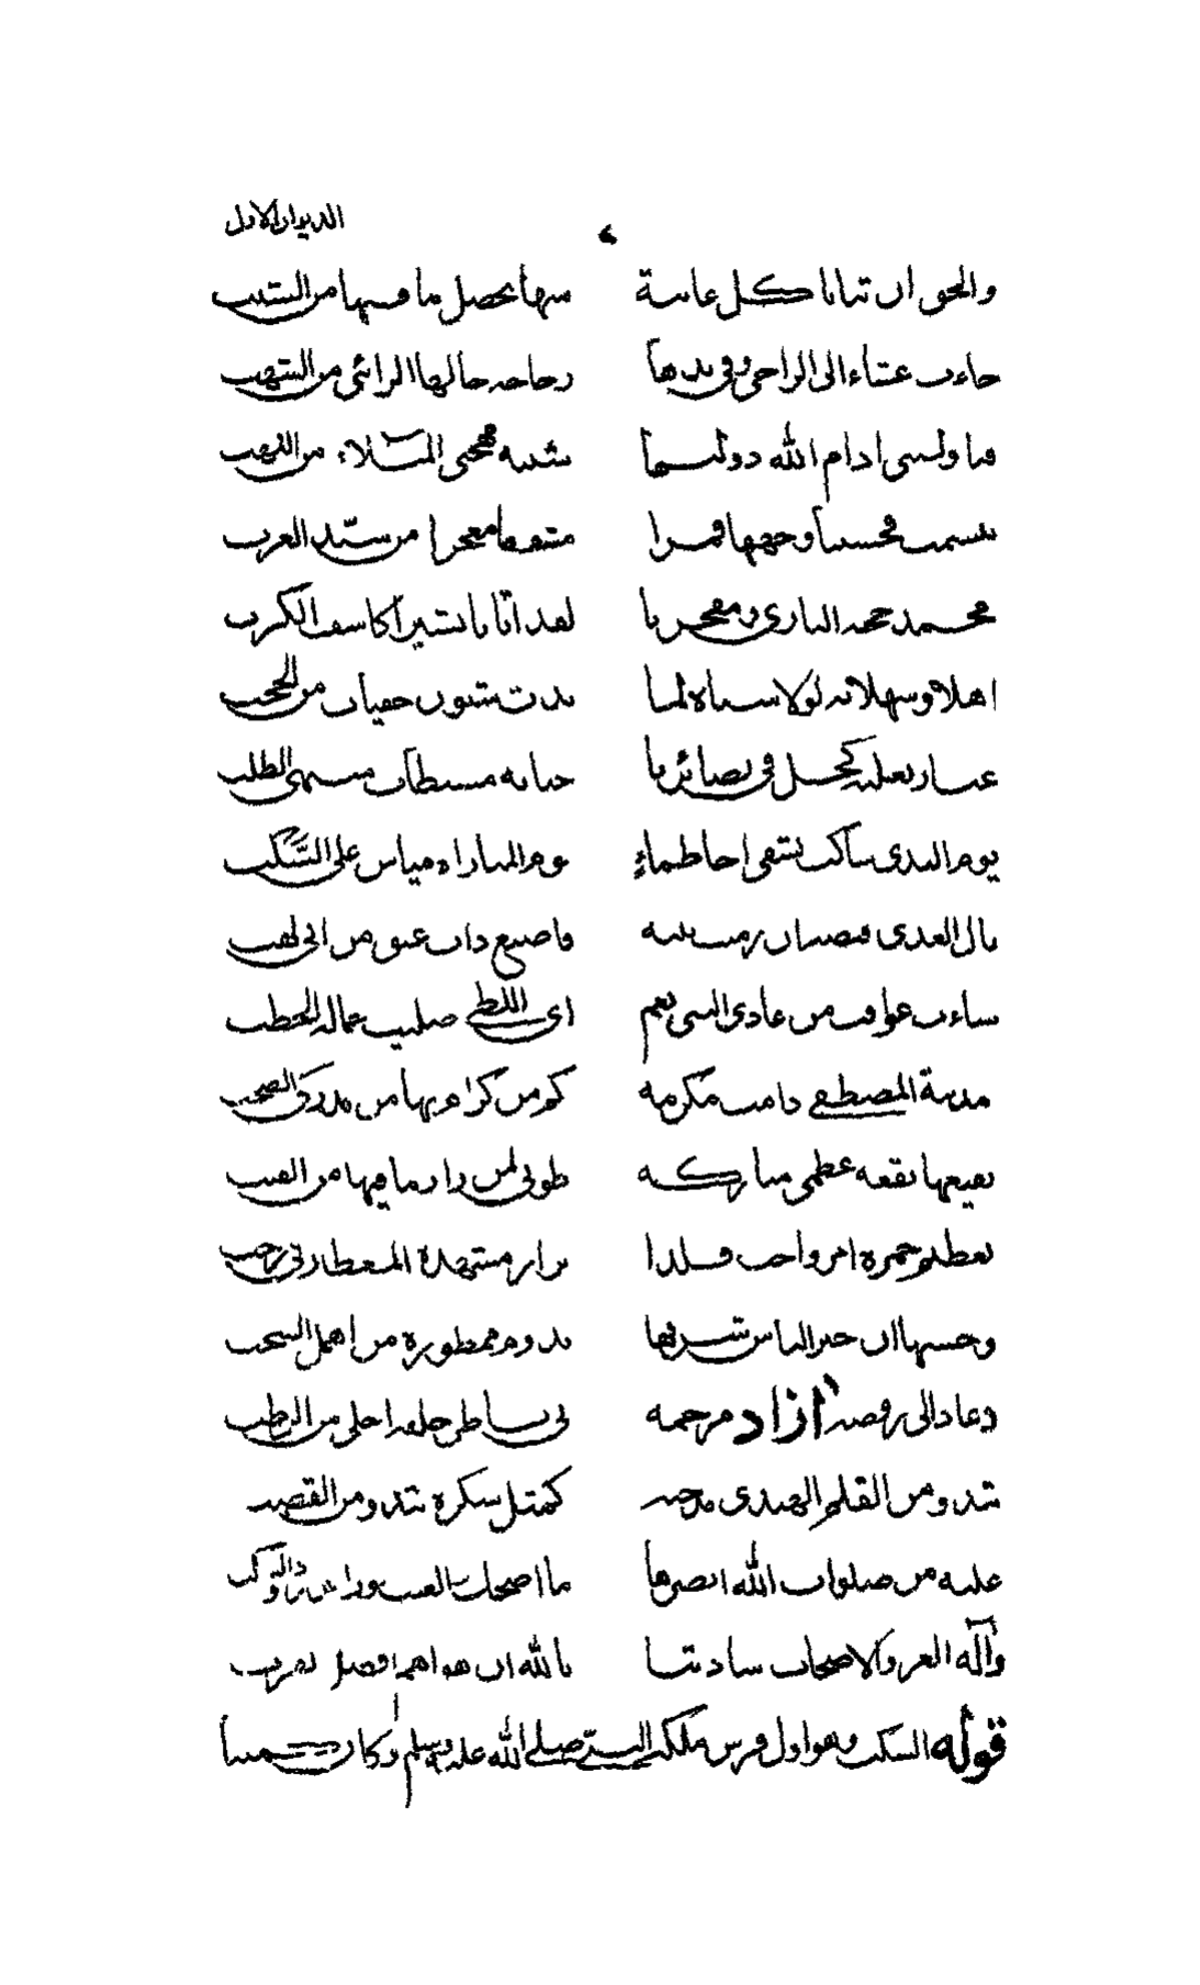 الديوان الاول
والحق ان ثنايا كل غانية منها يحصل ما فيها من الشنب
جاءت عشاء الى الراجي وفي يدها زجاجة خالها الرائي من الشهب
ادام الله دولتها شبيه مهجتي من اللهب
تبسمت فحسبنا وجهها قمرا منشقا معجزا من سيد العرب
محمد حجة الباري ومفخرنا لقد اتانا بشيرا كاشف الكرب
اهلا وسهلا به لولا سناه لما بدت شئون خفيات من الحجب
غبار نعليه كحل في بصائرنا جنابه مستطاب منتهى الطلب
يوم الندى ساكب يشفي اخا ظماء يوم المباراة مياس على السكب
نال العدى من فاصبع ذات عتق من ابي لهب
ساءت عواقب من عادى النبي نعم اي اللظى صليت حمالة الحطب
مدينة المصطفى دامت مكرمة كم من كرام بها من مدركي الصحب
بقيعها بقعة عظمى مباركة طوبى لمن زار ما فيها من القبب
تعظيم حمزة امر واجب فلذا نزار مشهده المعطار في رجب
وحسبها ان خير الناس شرفها تدوم ممطورة من اهمل السحب
دعا الى روضه آزاد مرحمة في بساطي جلعه احلى من الرطب
تبدو من القلم الهندي مدحته كمثل سكرة تبدو من القصب
عليه من صلوات الله انضرها ما اضحك
وآله الغر والاصحاب سادتنا بالله ان هواهم افضل القرب
قوله السكب وهو اول فرس ملكه النبي صلى الله عليه وسلم وكان كميتا